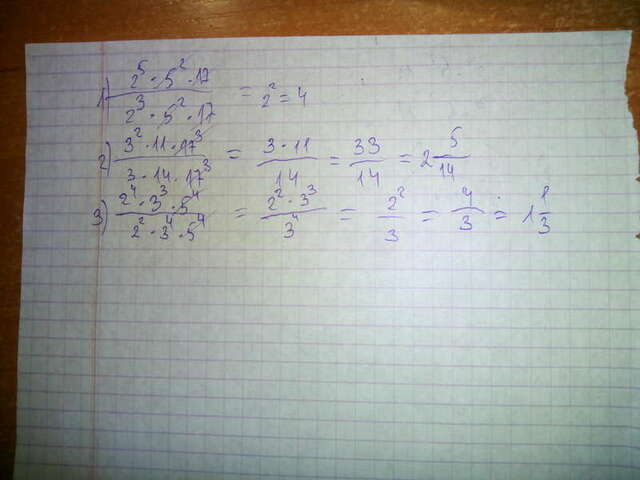 1) 2⁵·5²·17 / 2³·5²·17 = 2² = 4
2) 3²·11·17³ / 3·14·17³ = 3·11 / 14 = 33 / 14 = 2 5/14
3) 2⁴·3³·5⁴ / 2²·3⁴·5⁴ = 2²·3³ / 3⁴ = 2² / 3 = 4 / 3 = 1 1/3